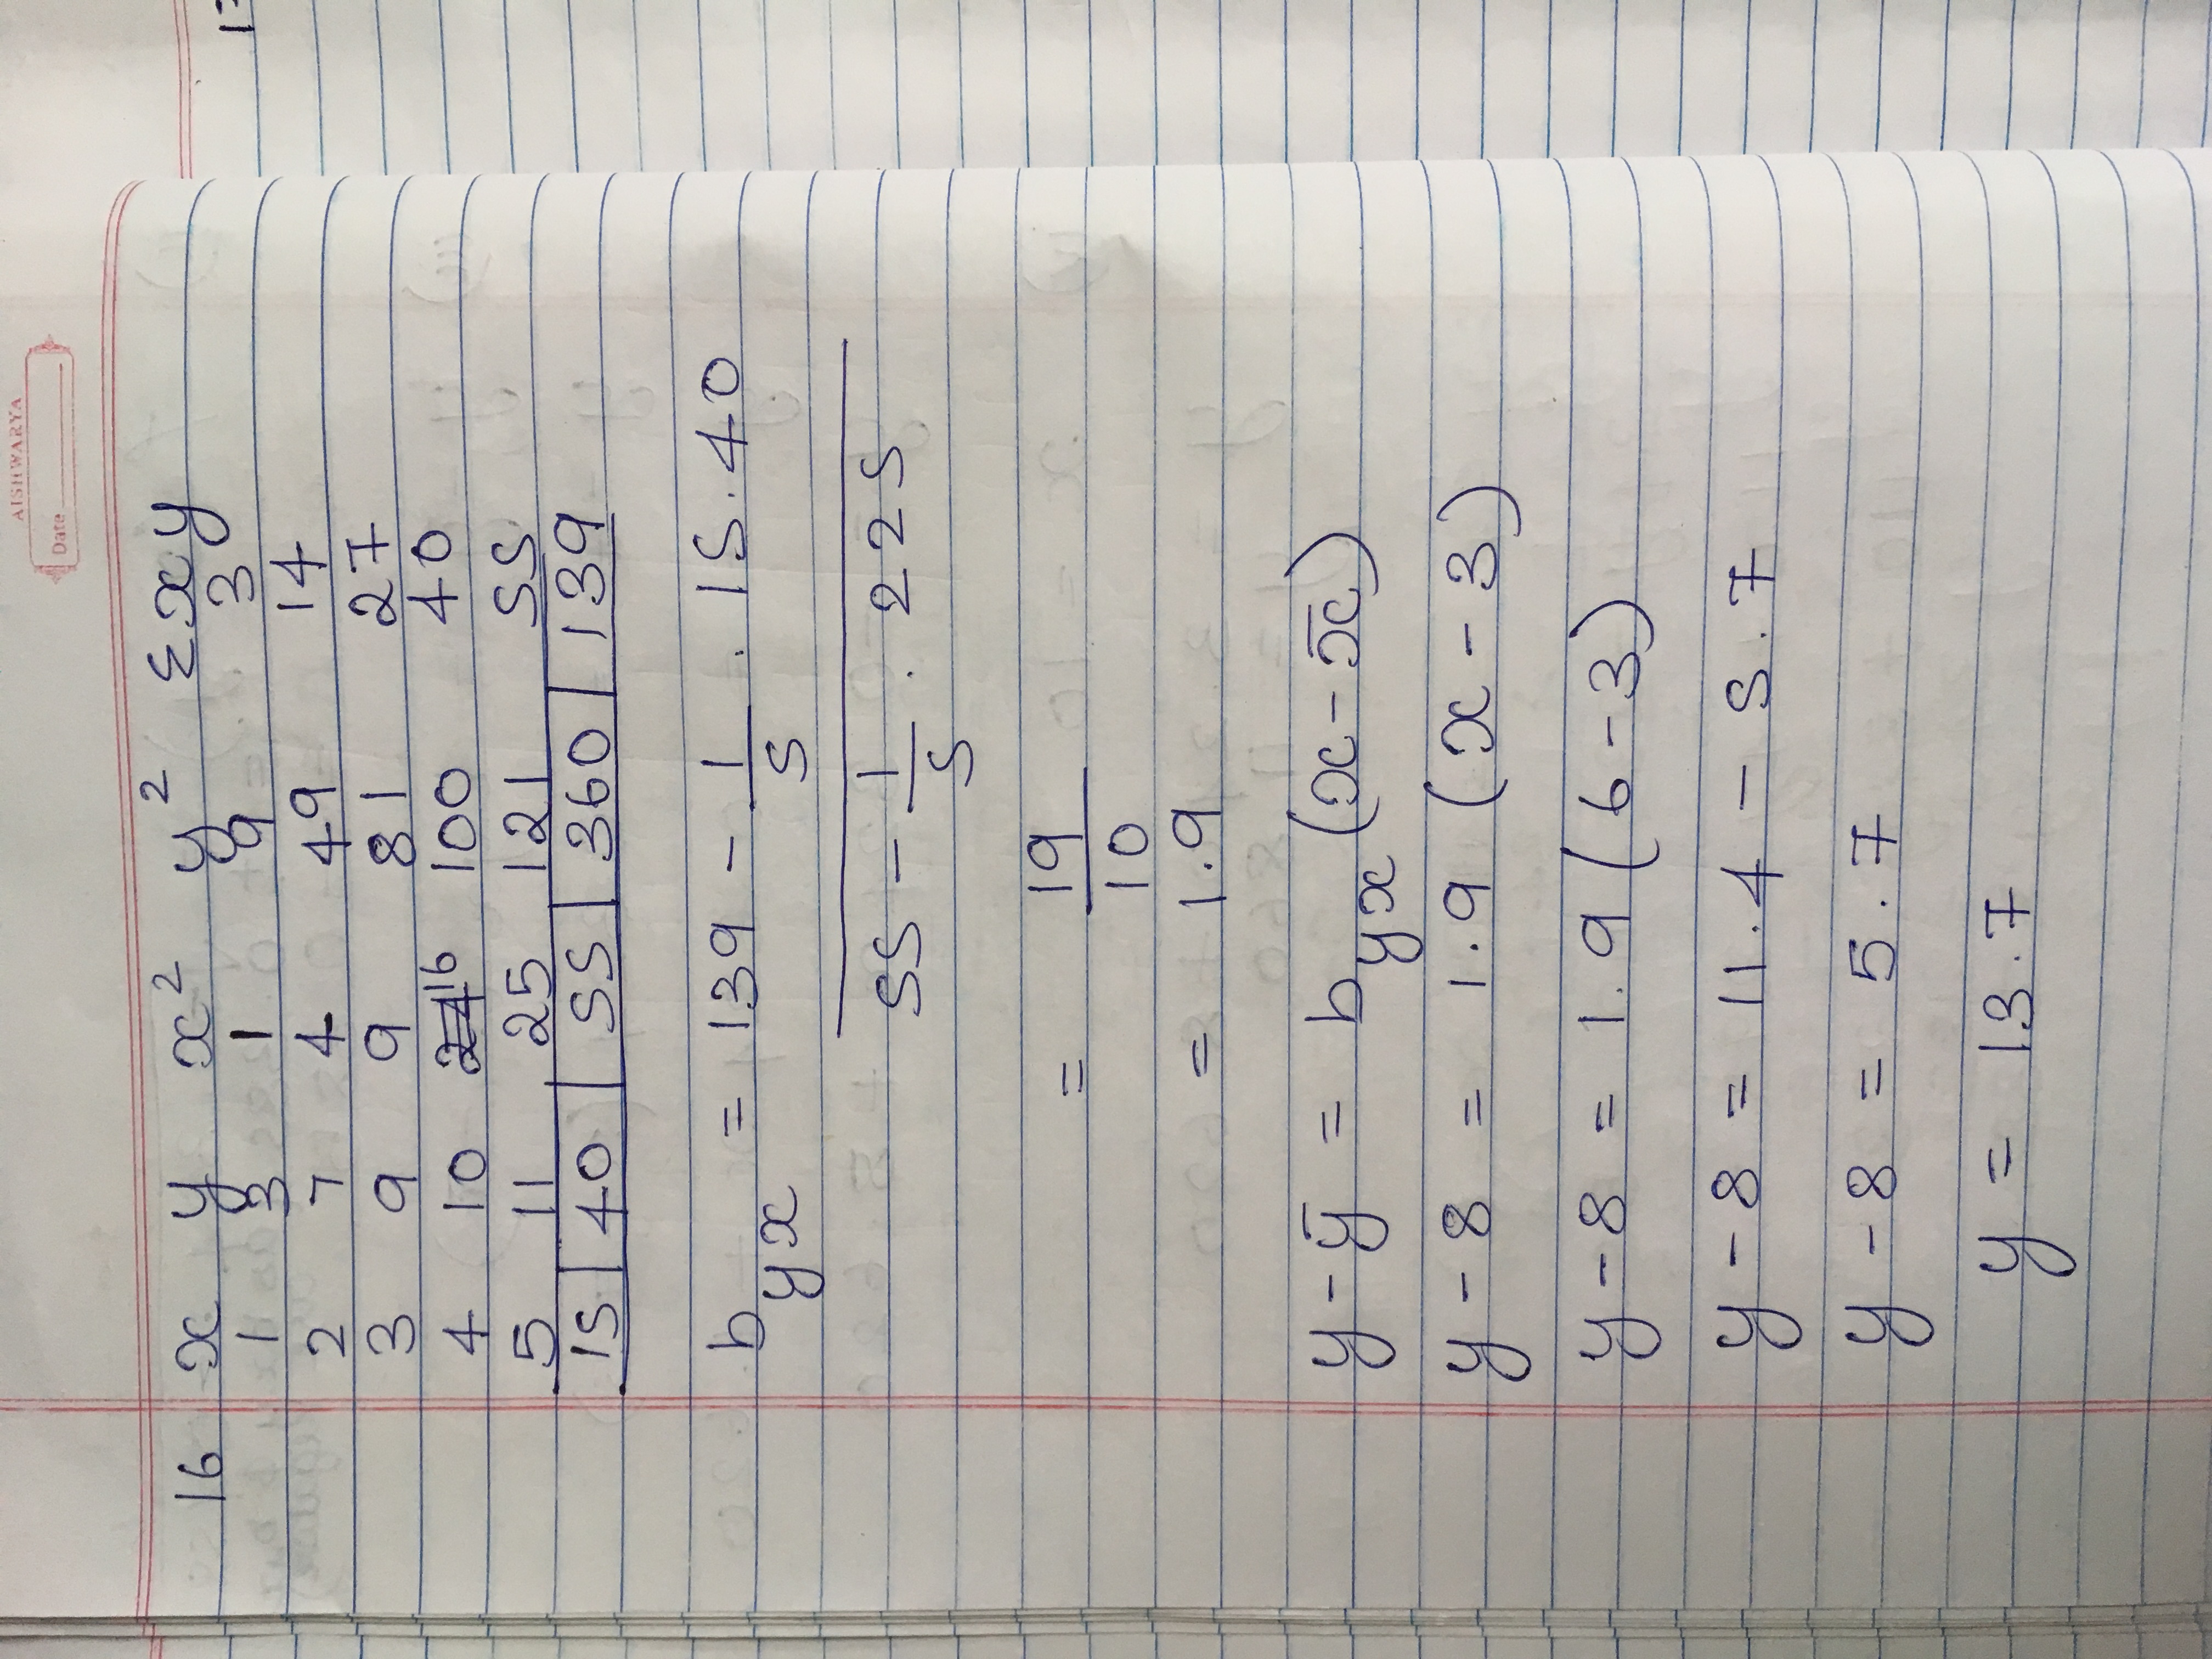 AISHWARYA
Date
16 x y x² y² Σxy
1 3 1 9 3
2 7 4 49 14
3 9 9 81 27
4 10 24 16 100 40
5 11 25 121 55
15 40 55 360 139
b_yx = 139 - 1/5 . 15.40
55 - 1/5 . 225
= 19/10
= 1.9
y - ȳ = b_yx (x - x̄)
y - 8 = 1.9 (x - 3)
y - 8 = 1.9 (6 - 3)
y - 8 = 11.4 - 5.7
y - 8 = 5.7
y = 13.7